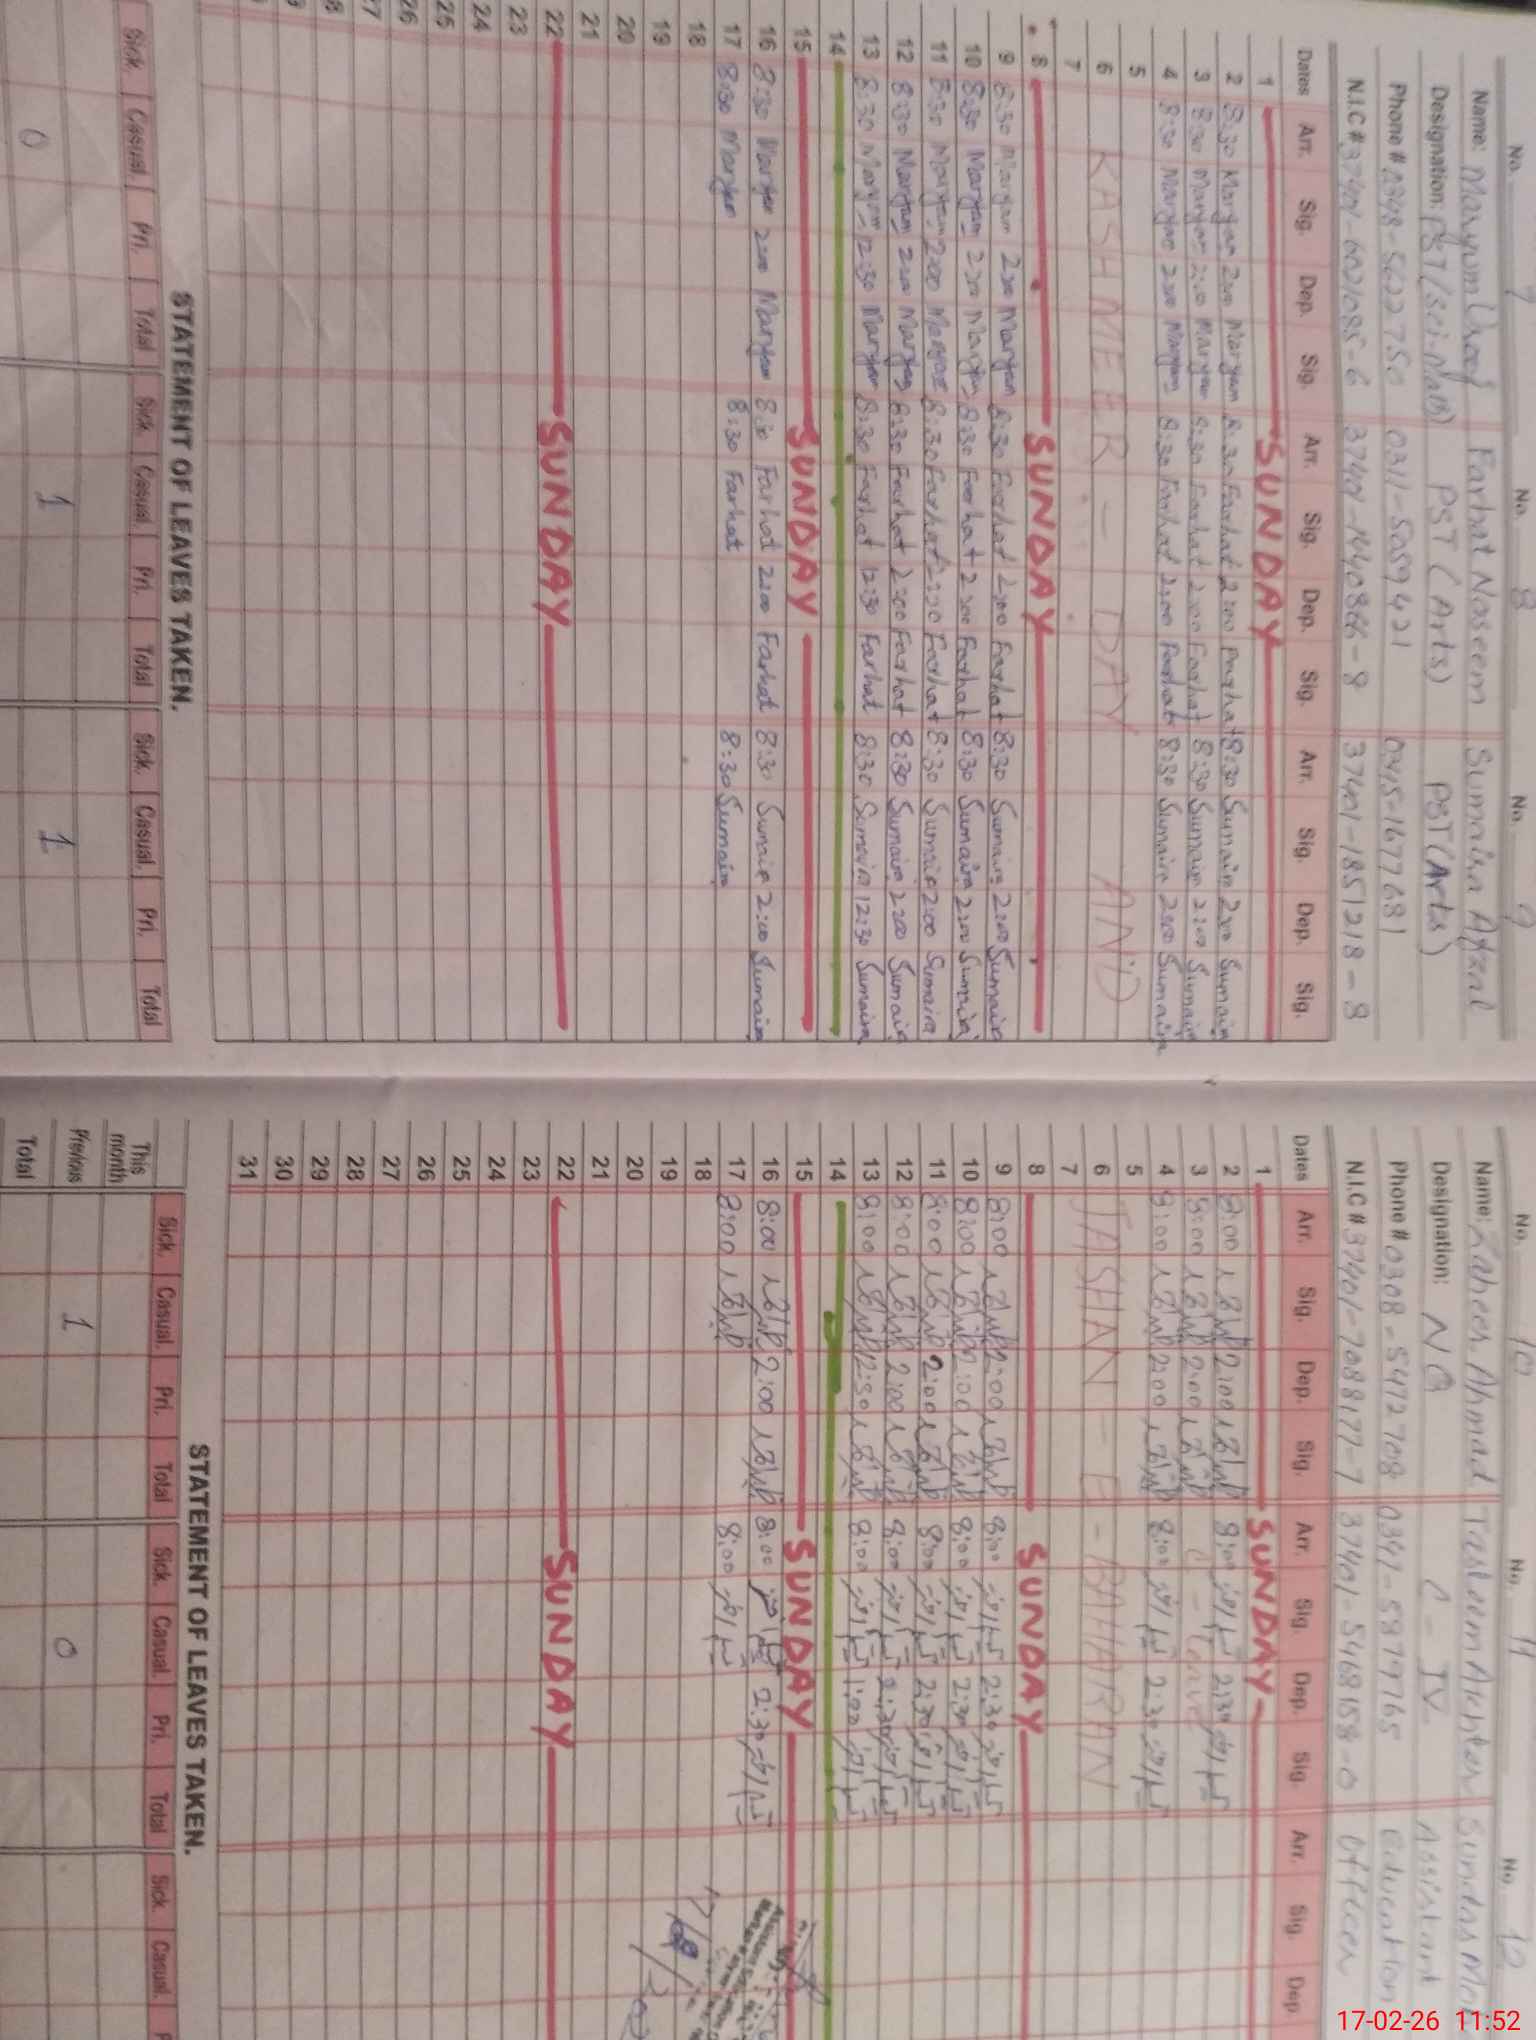 No. 7 No. 8 No. 9
Name: Maryum Uroof Farhat Naseem Sumaira Afzal
Designation: PST (Sci-Math) PST (Arts) PST (Arts)
Phone # 0348-5622750 0311-5059421 0345-1677681
N.I.C # 37401-6021085-6 37401-1440866-8 37401-1851218-8
Dates Arr. Sig. Dep. Sig. Arr. Sig. Dep. Sig. Arr. Sig. Dep. Sig.
1 SUNDAY
2 8:30 Maryam 2:00 Maryam 8:30 Farhat 2:00 Farhat 8:30 Sumaira 2:00 Sumaira
3 8:30 Maryam 2:00 Maryam 8:30 Farhat 2:00 Farhat 8:30 Sumaira 2:00 Sumaira
4 8:30 Maryam 2:00 Maryam 8:30 Farhat 2:00 Farhat 8:30 Sumaira 2:00 Sumaira
5
6 KASHMEER - DAY AND
7
8 SUNDAY
9 8:30 Maryam 2:00 Maryam 8:30 Farhat 2:00 Farhat 8:30 Sumaira 2:00 Sumaira
10 8:30 Maryam 2:00 Maryam 8:30 Farhat 2:00 Farhat 8:30 Sumaira 2:00 Sumaira
11 8:30 Maryam 2:00 Maryam 8:30 Farhat 2:00 Farhat 8:30 Sumaira 2:00 Sumaira
12 8:30 Maryam 2:00 Maryam 8:30 Farhat 2:00 Farhat 8:30 Sumaira 2:00 Sumaira
13 8:30 Maryam 12:30 Maryam 8:30 Farhat 12:30 Farhat 8:30 Sumaira 12:30 Sumaira
14
15 SUNDAY
16 8:30 Maryam 2:00 Maryam 8:30 Farhat 2:00 Farhat 8:30 Sumaira 2:00 Sumaira
17 8:30 Maryam 8:30 Farhat 8:30 Sumaira
18
19
20
21
22 SUNDAY
23
24
25
26
27
STATEMENT OF LEAVES TAKEN.
Sick. Casual. Pri. Total Sick. Casual. Pri. Total Sick. Casual. Pri. Total
0 1 1
No. 10 No. 11 No. 12
Name: Zaheer Ahmad Tasleem Akhter Sundas
Designation: N Q C-IV Assistant
Phone # 0308-5472708 0341-5879765 Education
N.I.C # 37401-7088177-7 37401-5468158-0 Officer
Dates Arr. Sig. Dep. Sig. Arr. Sig. Dep. Sig. Arr. Sig. Dep.
1 SUNDAY
2 8:00 2:00 8:00 2:30
3 8:00 2:00 C - Leave
4 8:00 2:00 8:00 2:30
5
6 JASHAN - E - BAHARAN
7
8 SUNDAY
9 8:00 2:00 8:00 2:30
10 8:00 2:00 8:00 2:30
11 8:00 2:00 8:00 2:30
12 8:00 2:00 8:00 2:30
13 8:00 12:30 8:00 1:00
14
15 SUNDAY
16 8:00 2:00 8:00 2:30
17 8:00 8:00
18
19
20
21
22 SUNDAY
23
24
25
26
27
28
29
30
31
STATEMENT OF LEAVES TAKEN.
Sick. Casual. Pri. Total Sick. Casual. Pri. Total Sick. Casual.
This month
Previous 1 0
Total
17-02-26 11:52